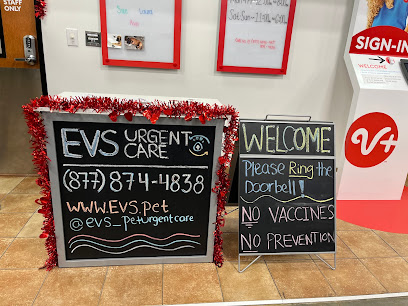 STAFF
ONLY
SIGN-IN
WELCOME
V+
EVS URGENT
CARE
(877) 874-4838
WWW.EVS.Pet
@evs_peturgentcare
WELCOME
Please Ring the
Doorbell!
NO VACCINES
NO PREVENTION